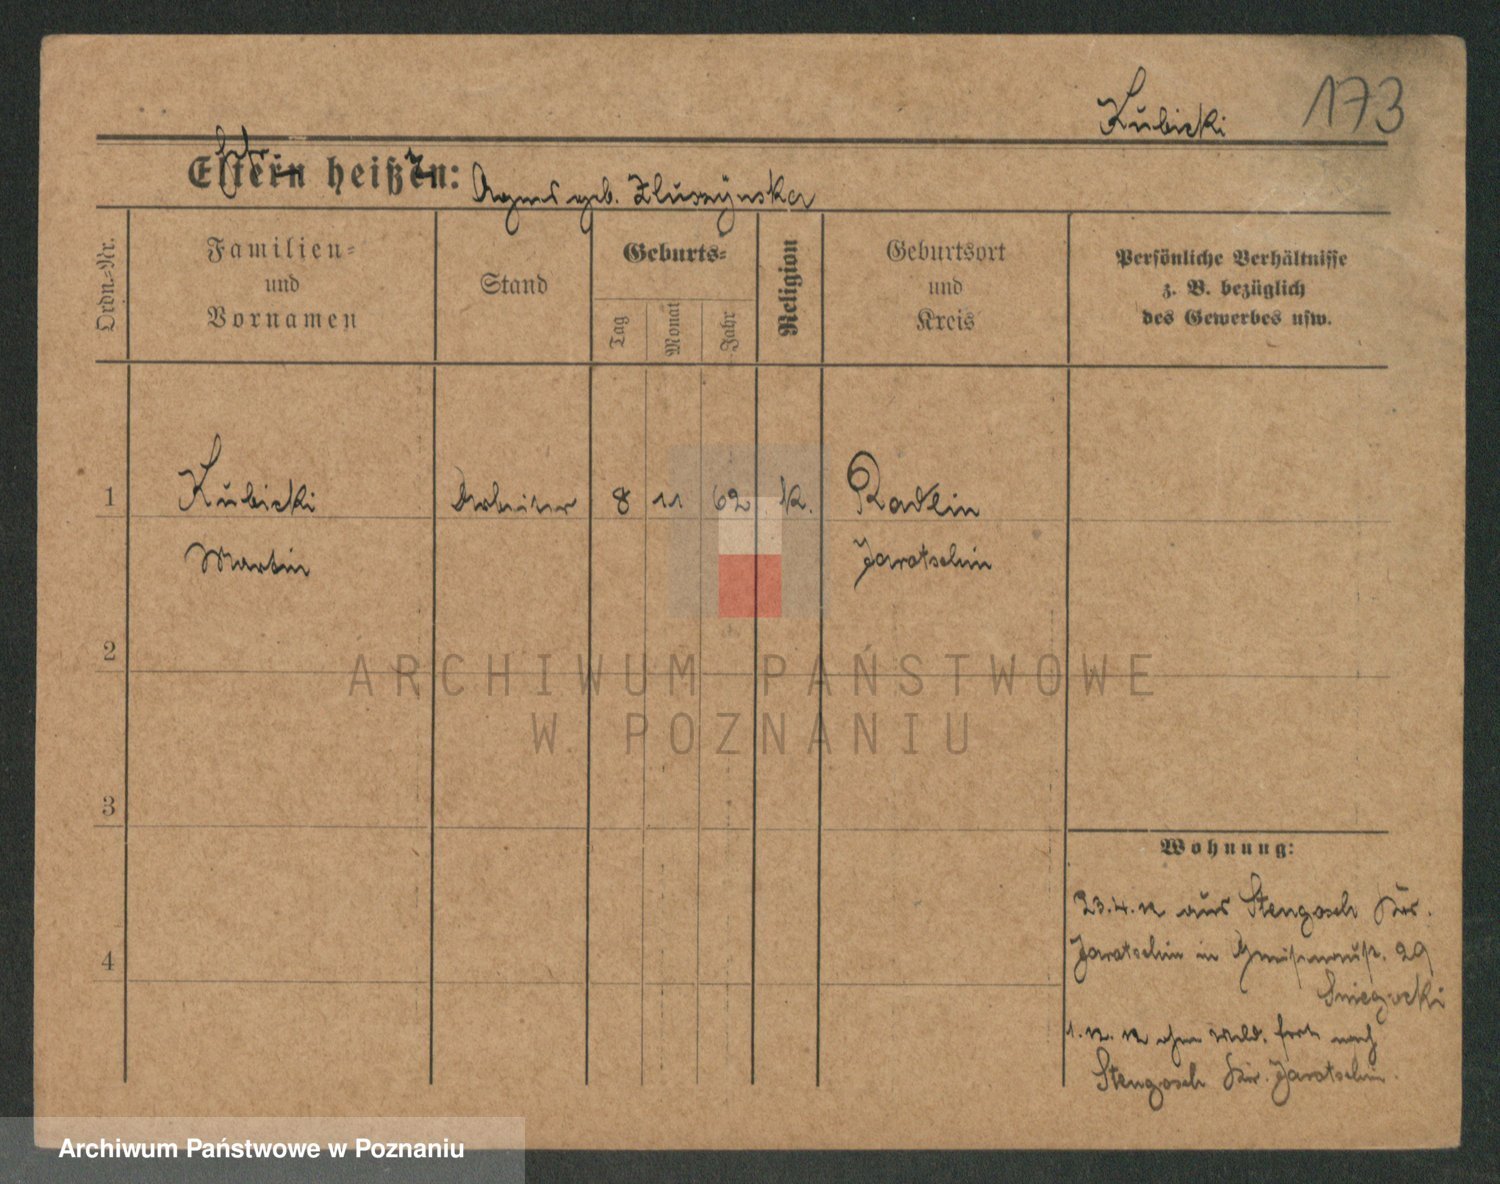 Kubicki 173
Eltern heißen: Agnes geb. Zluszynska
Ordn.-Nr.
Familien-
und
Vornamen
Stand
Geburts-
Tag
Monat
Jahr
Religion
Geburtsort
und
Kreis
Persönliche Verhältnisse
z. B. bezüglich
des Gewerbes usw.
1 Kubicki Arbeiter 8 11 62 k. Radlin
Martin Jarotschin
2
ARCHIWUM PAŃSTWOWE
W POZNANIU
3
Wohnung:
23.4.12 aus Stengosch Kr.
4
Jarotschin in Gneisenaustr. 29
Sniegocki
1. 12. 12 ohne Meld. fort nach
Stengosch Kr. Jarotschin.
Archiwum Państwowe w Poznaniu